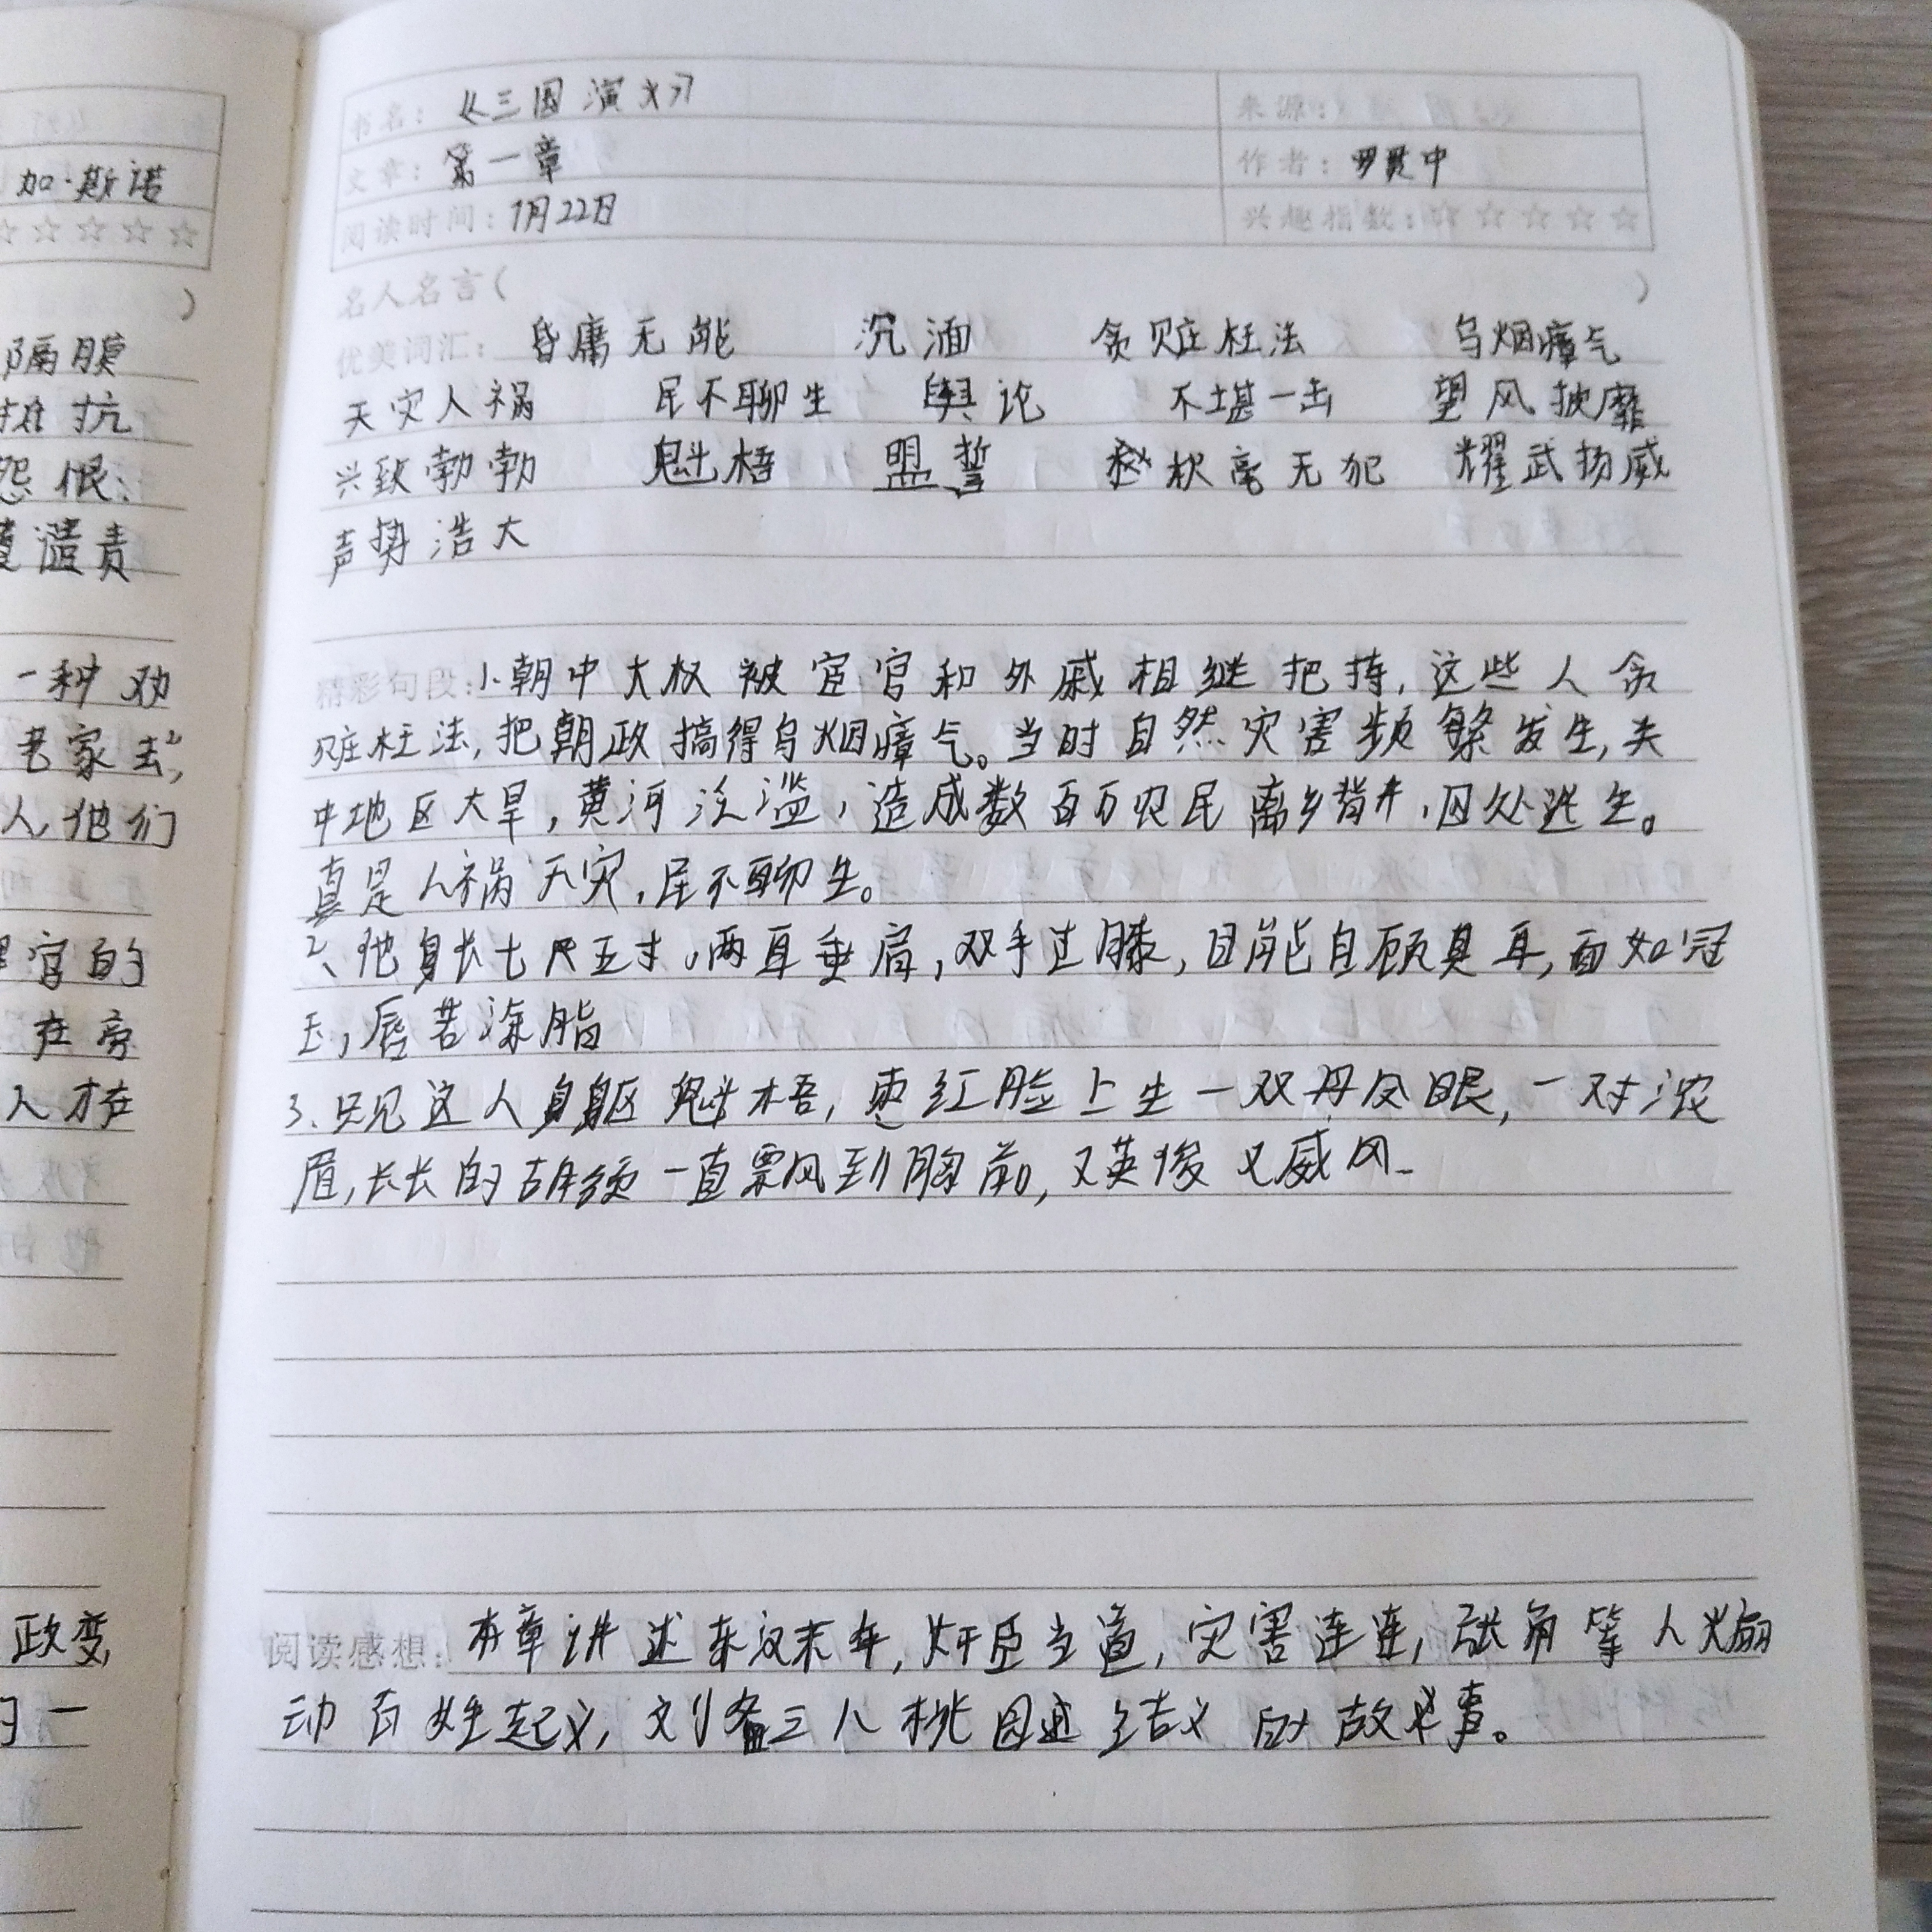 加·斯诺
☆☆☆☆☆
)
隔膜
抵抗
怨恨
谴责
一种劝
老家去",
人,他们
官的
在旁
人才在
政变,
一
书名:《三国演义》
来源:
文章:第一章
作者:罗贯中
阅读时间:1月22日
兴趣指数:☆☆☆☆☆
名人名言( )
优美词汇:昏庸无能 沉湎 贪赃枉法 乌烟瘴气
天灾人祸 民不聊生 舆论 不堪一击 望风披靡
兴致勃勃 魁梧 盟誓 秋毫无犯 耀武扬威
声势浩大
精彩句段:1、朝中大权被宦官和外戚相继把持,这些人贪
赃枉法,把朝政搞得乌烟瘴气。当时自然灾害频繁发生,关
中地区大旱,黄河泛滥,造成数百万农民离乡背井,四处逃生。
真是人祸天灾,民不聊生。
2、他身长七尺五寸,两耳垂肩,双手过膝,目能自顾其耳,面如冠
玉,唇若涂脂
3、只见这人身躯魁梧,枣红脸上生一双丹凤眼,一对浓
眉,长长的胡须一直飘到胸前,又英俊又威风
阅读感想:本章讲述东汉末年,奸臣当道,灾害连连,张角等人煽
动百姓起义,刘备三人桃园结义的故事。